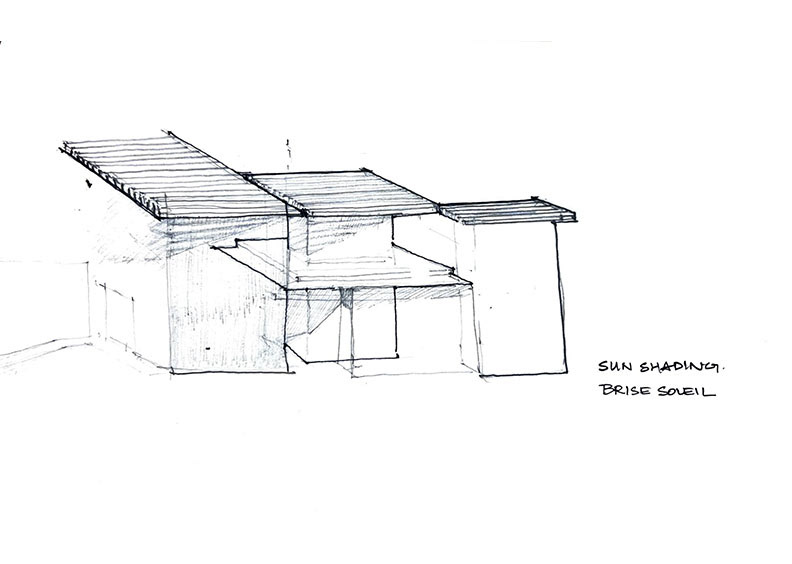 SUN SHADING.
BRISE SOLEIL